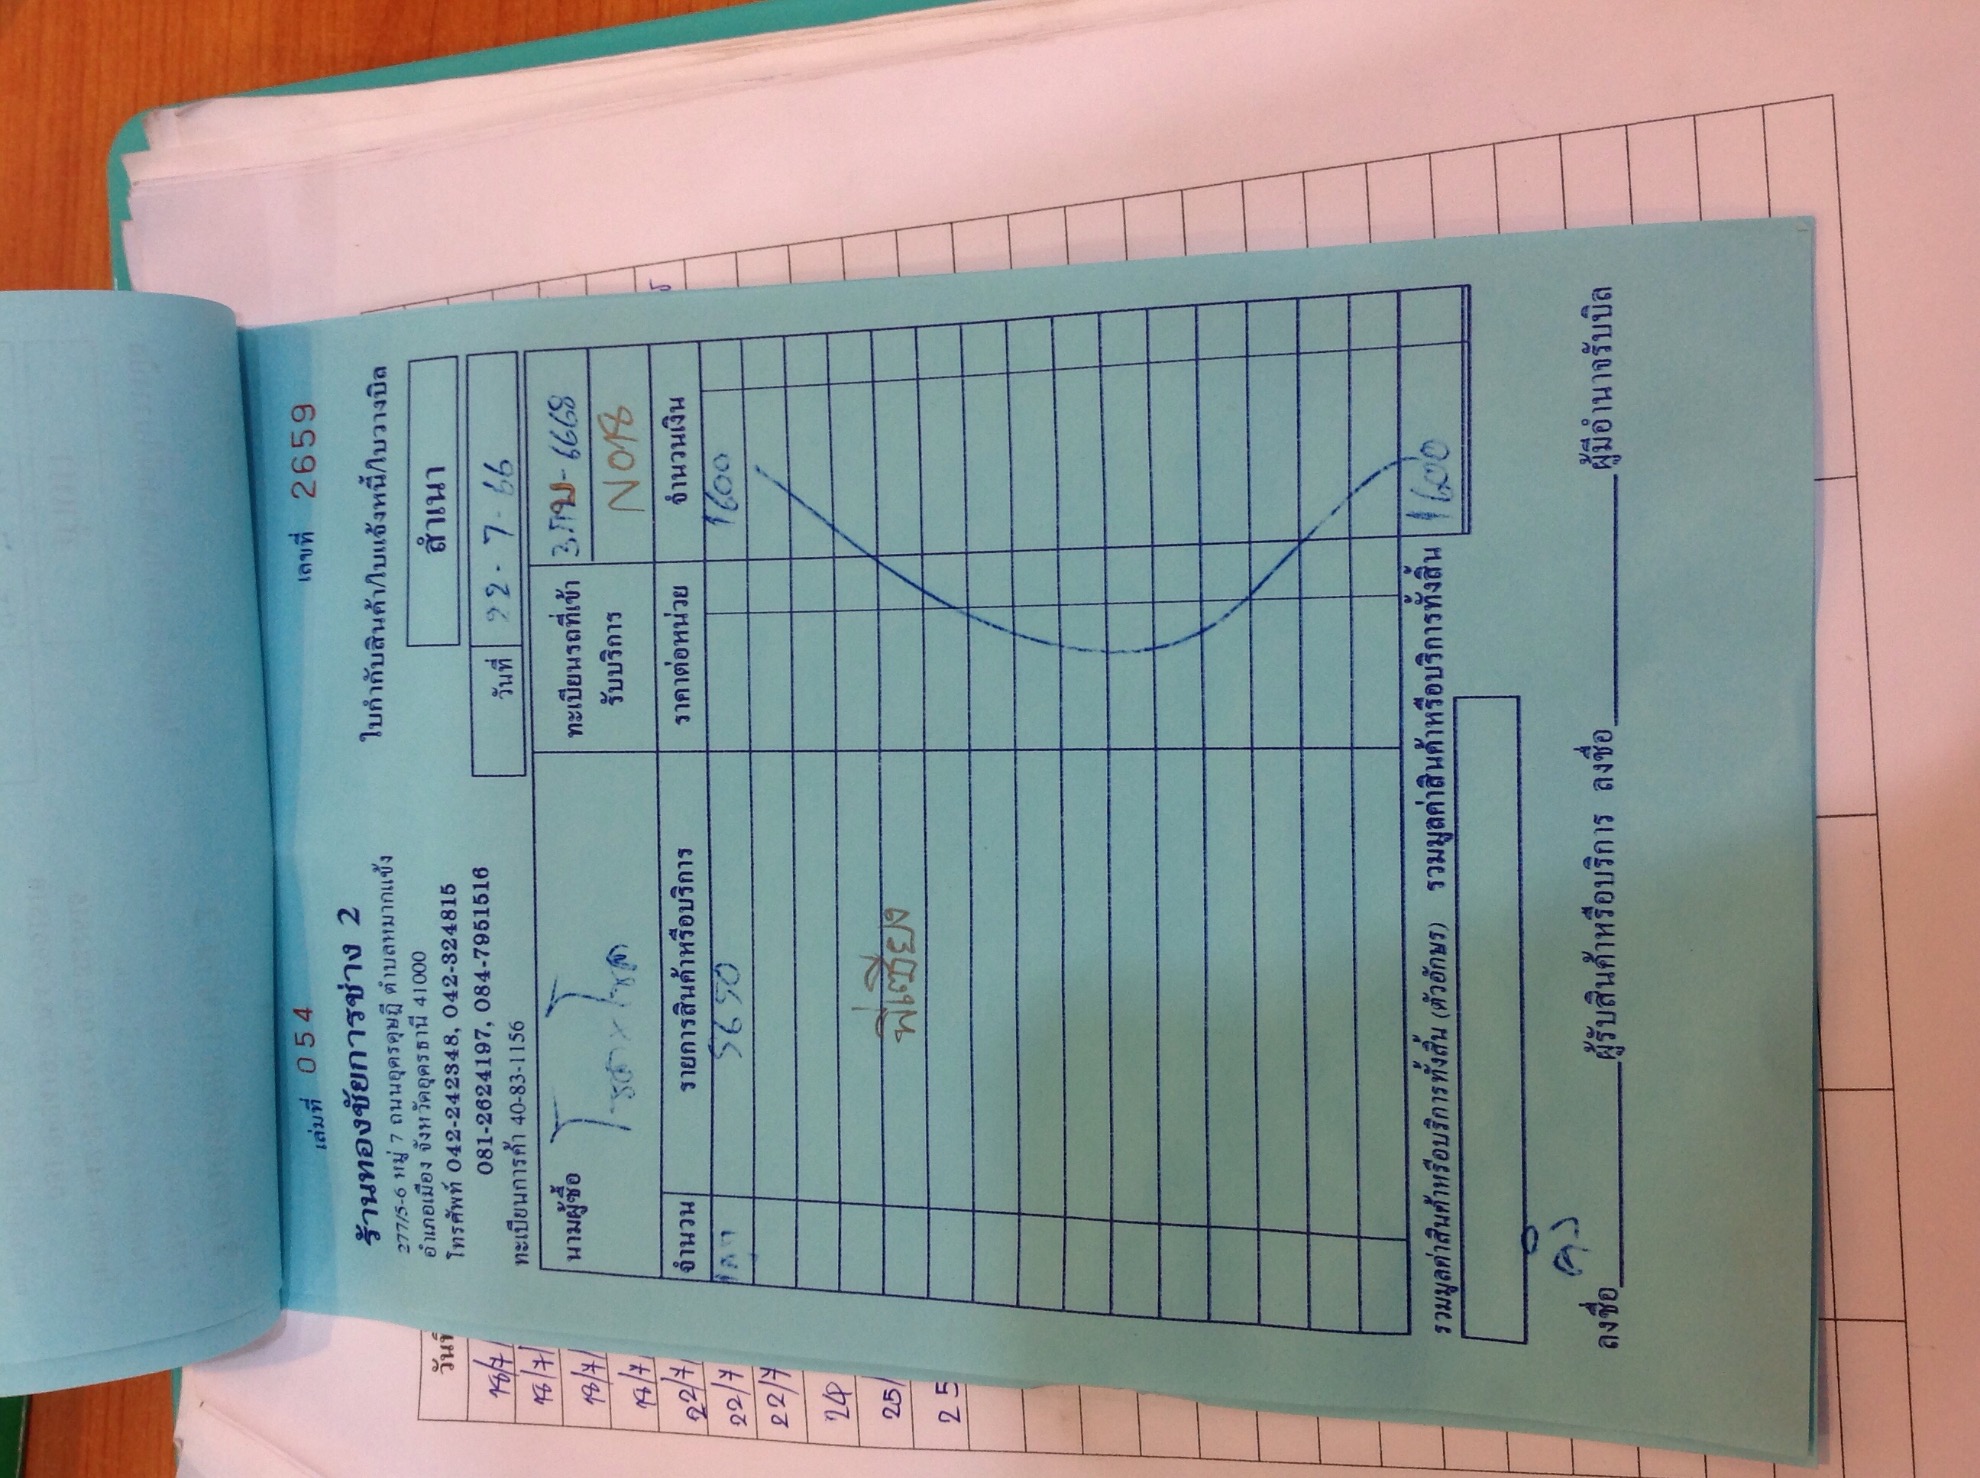 เล่มที่ 054 เลขที่ 2659
ร้านทองชัยการช่าง 2
ใบกำกับสินค้า/ใบแจ้งหนี้/ใบวางบิล
277/5-6 หมู่ 7 ถนนอุดรดุษฎี ตำบลหมากแข้ง
อำเภอเมือง จังหวัดอุดรธานี 41000
สำเนา
โทรศัพท์ 042-242348, 042-324815
081-2624197, 084-7951516
วันที่ 22-7-66
ทะเบียนการค้า 40-83-1156
นามผู้ซื้อ
ทะเบียนรถที่เข้า
รับบริการ
-6668
N018
จำนวน รายการสินค้าหรือบริการ ราคาต่อหน่วย จำนวนเงิน
5650 1600
พี่เซียง
รวมมูลค่าสินค้าหรือบริการทั้งสิ้น (ตัวอักษร) รวมมูลค่าสินค้าหรือบริการทั้งสิ้น 1600
ลงชื่อ ผู้รับสินค้าหรือบริการ ลงชื่อ ผู้มีอำนาจรับบิล
18/7
18/7/
18/7/
18/7
22/7
22/7
22/7
24
25/
25